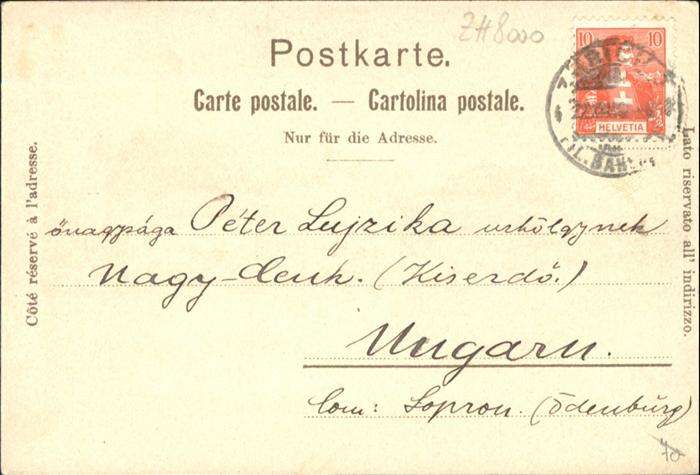 ZH8000
Postkarte.
10 10
HELVETIA
Carte postale. — Cartolina postale.
Nur für die Adresse.
Côté réservé à l'adresse.
Lato riservato all' indirizzo.
őnagysága Péter Lujzika urhölgynek
Nagy-Cenk. (Kiserdő.)
Ungarn.
Com: Sopron. (Ödenburg)
70